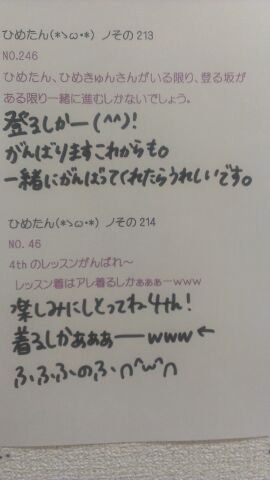 ひめたん(*>ω<*) ノその213
NO.246
ひめたん、ひめきゅんさんがいる限り、登る坂が
ある限り一緒に進むしかないでしょう。
登るしかー(^^)!
がんばりますこれからも。
一緒にがんばってくれたらうれしいです。
ひめたん(*>ω<*) ノその214
NO. 46
4thのレッスンがんばれ～
レッスン着はアレ着るしかぁぁぁーwww
楽しみにしとってね4th!
着るしかぁぁぁーwww←
ふふふのふ∩^ω^∩